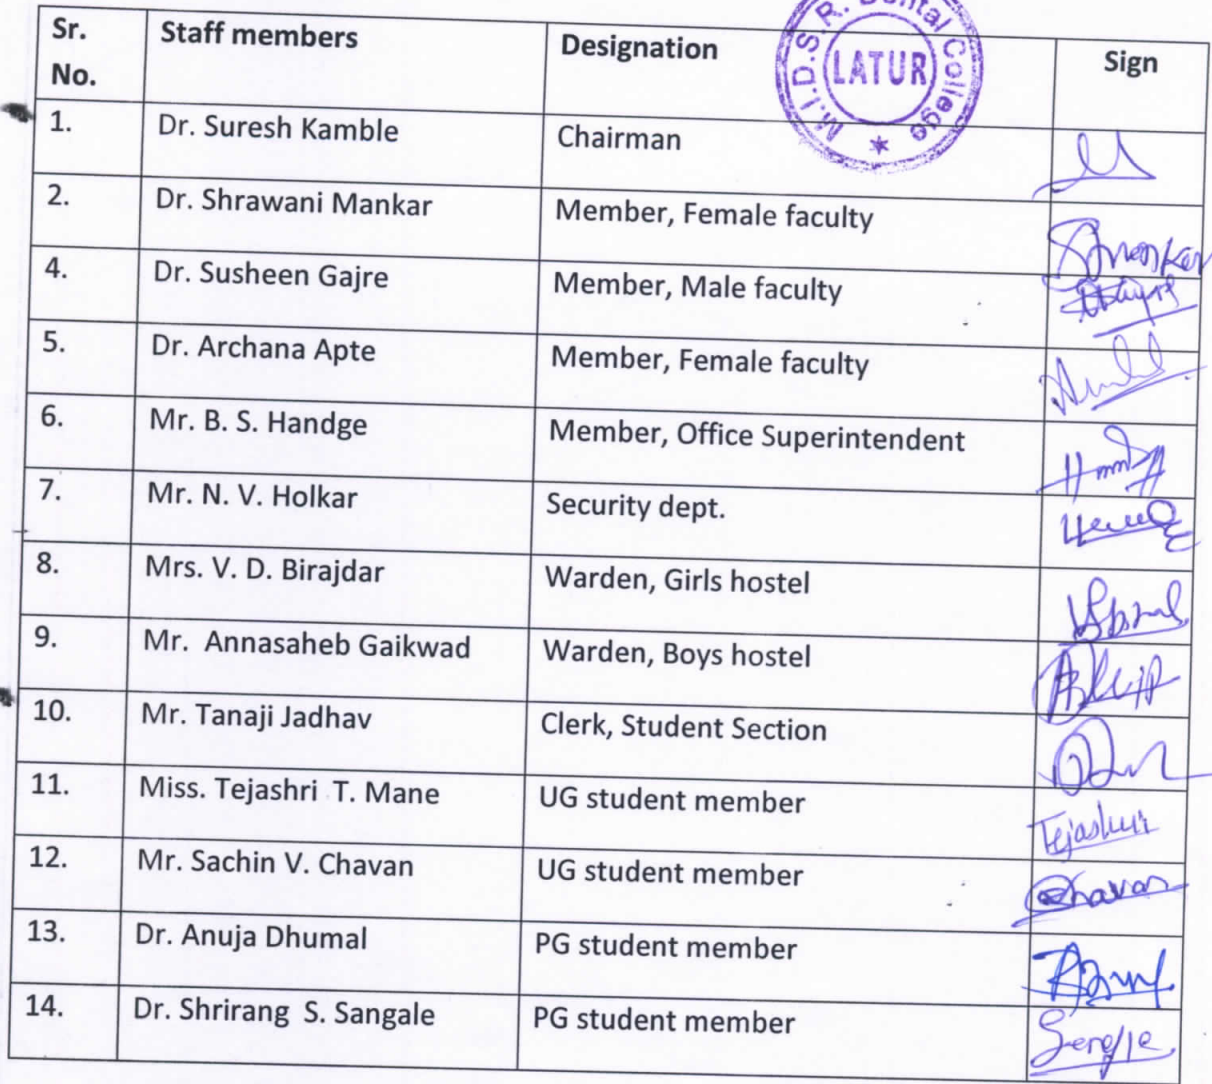 Sr. No. Staff members Designation Sign
M.I.D.S.R. Dental College
LATUR
1. Dr. Suresh Kamble Chairman
2. Dr. Shrawani Mankar Member, Female faculty
4. Dr. Susheen Gajre Member, Male faculty
5. Dr. Archana Apte Member, Female faculty
6. Mr. B. S. Handge Member, Office Superintendent
7. Mr. N. V. Holkar Security dept.
8. Mrs. V. D. Birajdar Warden, Girls hostel
9. Mr. Annasaheb Gaikwad Warden, Boys hostel
10. Mr. Tanaji Jadhav Clerk, Student Section
11. Miss. Tejashri T. Mane UG student member Tejashri
12. Mr. Sachin V. Chavan UG student member Chavan
13. Dr. Anuja Dhumal PG student member
14. Dr. Shrirang S. Sangale PG student member